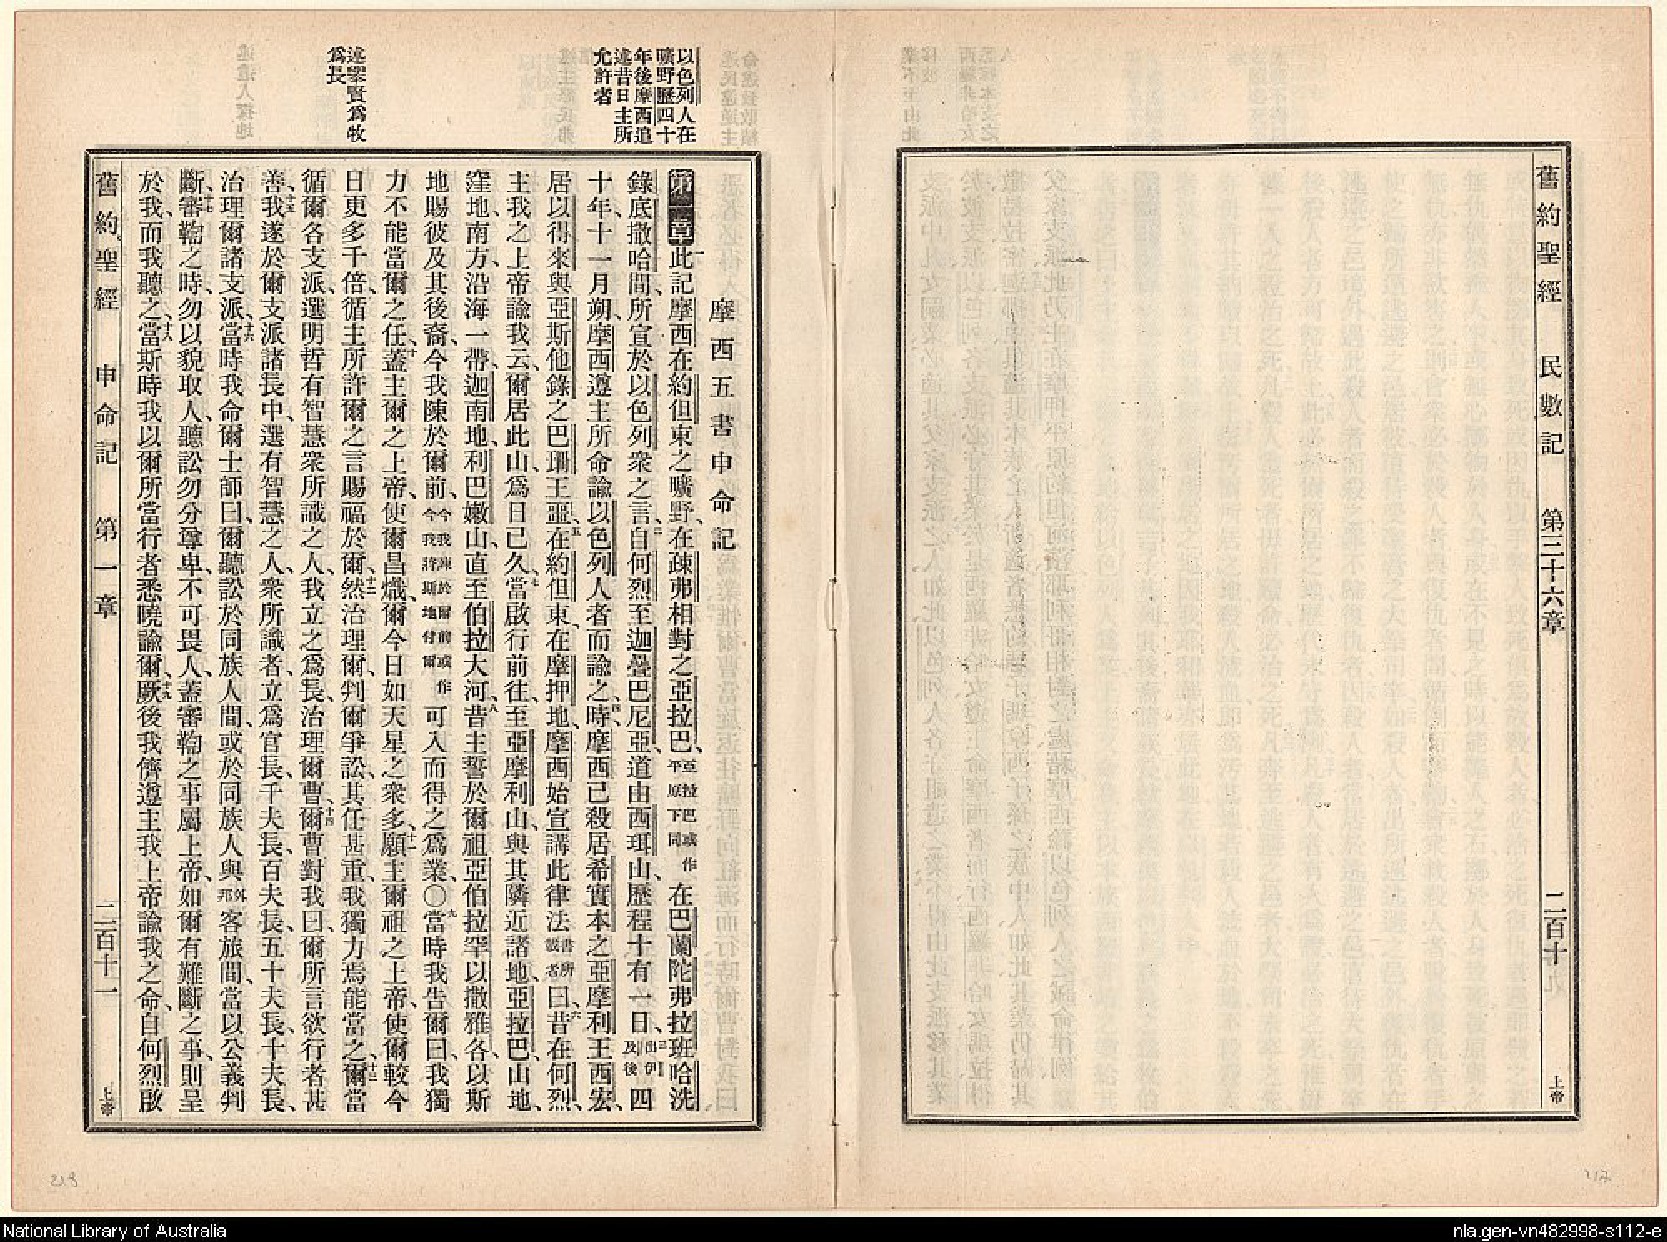 舊約聖經 民數記 第三十六章 二百十 上帝
以色列人在
曠野歷四十
年後摩西追
述昔日主所
允許者
述衆賢爲牧
爲長
摩西五書申命記
第一章 此記摩西在約但東之曠野、在疎弗相對之亞拉巴、亞拉巴或作平原下同在巴蘭陀弗拉班哈洗
錄底撒哈間、所宣於以色列衆之言、自何烈至迦疊巴尼亞、道由西珥山、歷程十有一日、三出伊及後四
十年十一月朔、摩西遵主所命諭以色列人者而諭之、時四摩西已殺居希實本之亞摩利王西宏、
居以得來與亞斯他錄之巴珊王噩、五在約但東、在摩押地、摩西始宣講此律法書所載者曰、六昔在何烈、
主我之上帝諭我云、爾居此山爲日已久、七當啟行前往、至亞摩利山與其隣近諸地、亞拉巴山地、
窪地、南方沿海一帶、迦南地、利巴嫩山、直至伯拉大河、八昔主誓於爾祖亞伯拉罕以撒雅各、以斯
地賜彼及其後裔、今我陳於爾前、今我陳於爾前或作今我將斯地付爾可入而得之爲業、〇九當時我告爾曰、我獨
力不能當爾之任、十蓋主爾之上帝、使爾昌熾、爾今日如天星之衆多、十一願主爾祖之上帝、使爾較今
日更多千倍、循主所許爾之言賜福於爾、十二然治理爾、判爾爭訟、其任甚重、我獨力焉能當之、十三爾當
循爾各支派、選明哲有智慧衆所識之人、我立之爲長、治理爾曹、十四爾曹對我曰、爾所言欲行者甚
善、十五我遂於爾支派諸長中、選有智慧之人、衆所識者、立爲官長、千夫長、百夫長、五十夫長、十夫長、
治理爾諸支派、十六當時我命爾士師曰、爾聽訟於同族人間、或於同族人與外邦客旅間、當以公義判
斷、十七審鞫之時、勿以貌取人、聽訟勿分尊卑、不可畏人、蓋審鞫之事屬上帝、如爾有難斷之事、則呈
於我、而我聽之、十八當斯時我以爾所當行者、悉曉諭爾、十九厥後我儕遵主我上帝諭我之命、自何烈啟
舊約聖經 申命記 第一章 二百十一 上帝
218
217
National Library of Australia
nla.gen-vn482998-s112-e